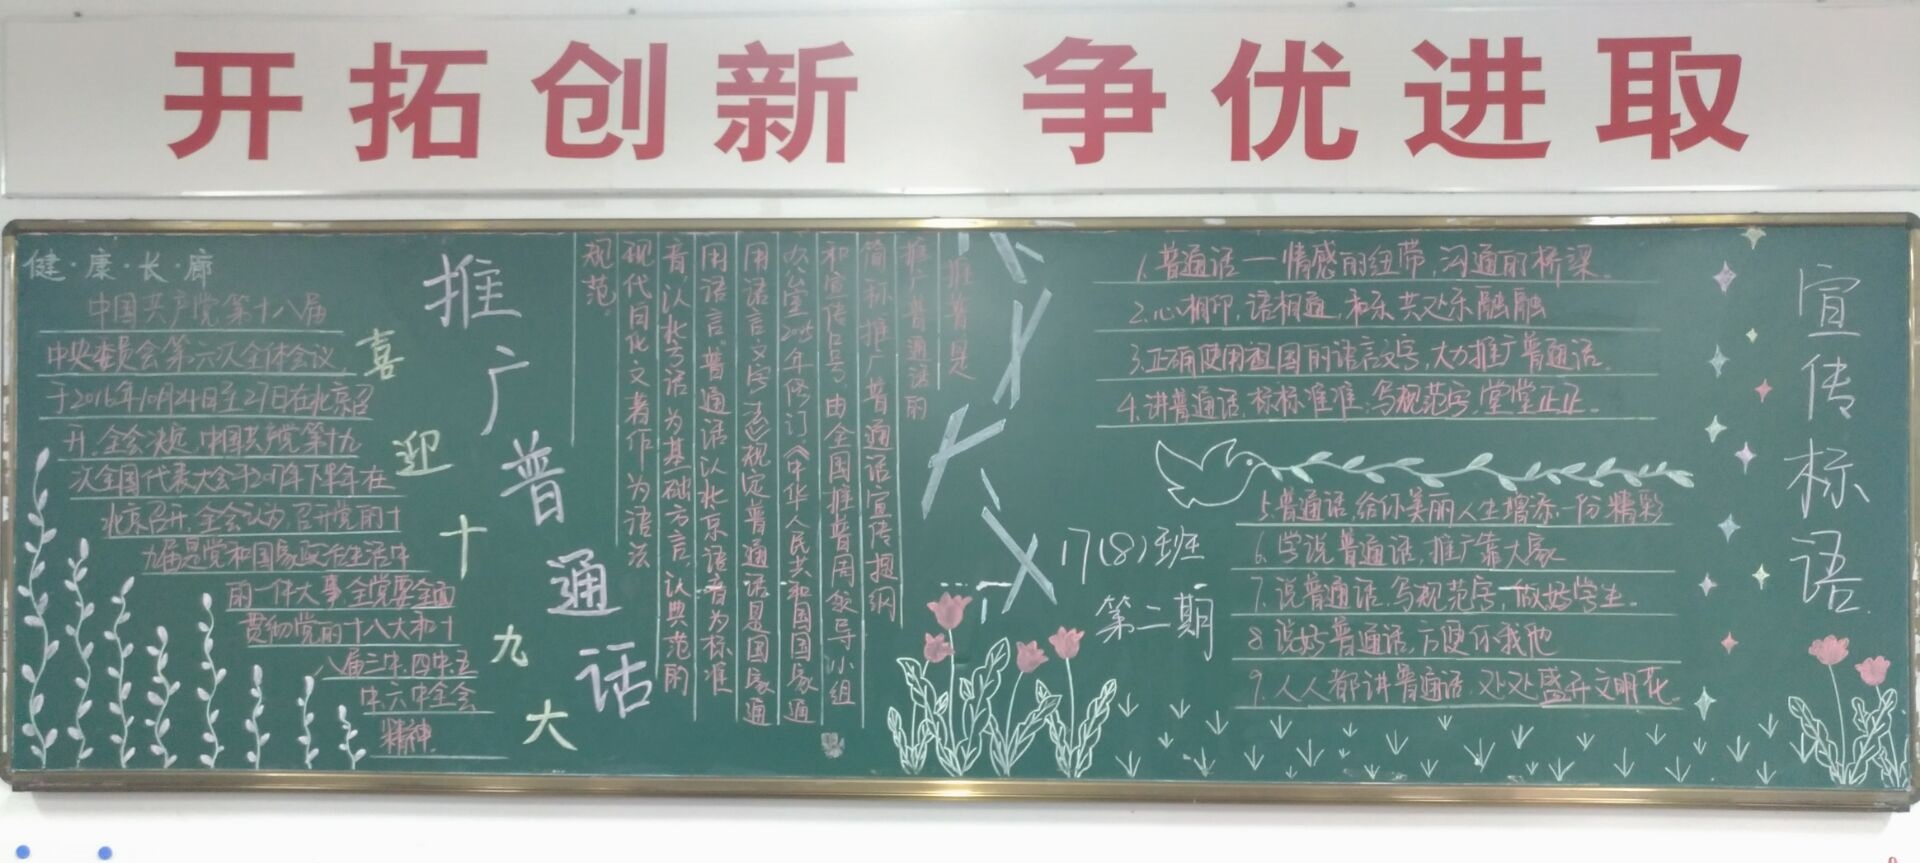 开拓创新 争优进取
健·康·长·廊
中国共产党第十八届
中央委员会第六次全体会议
于2016年10月24日至27日在北京召
开,全会决定,中国共产党第十九
次全国代表大会于2017年下半年在
北京召开,全会认为,召开党的十
九届是党和国家政治生活中
的一件大事全党要全面
贯彻党的十八大和十
八届三中、四中、五
中六中全会
精神
喜迎十九大
推广普通话
推普是
推广普通话的
简称推广普通话宣传提纲
和宣传口号,由全国推普周领导小组
办公室2005年修订《中华人民共和国国家通
用语言文字法》规定普通话是国家通
用语言。普通话以北京语音为标准
音,以北方话为基础方言,以典范的
现代白化文著作为语法
规范。
17(8)班
第二期
1.普通话—情感的纽带,沟通的桥梁。
2.心相印,语相通,和乐共处乐融融
3.正确使用祖国的语言文字,大力推广普通话。
4.讲普通话,标标准准,写规范字,堂堂正正。
5.普通话,给你美丽人生增添一份精彩
6.学说普通话,推广靠大家
7.说普通话,写规范字,做好学生。
8.说好普通话,方便你我他
9.人人都讲普通话,处处盛开文明花。
宣传标语